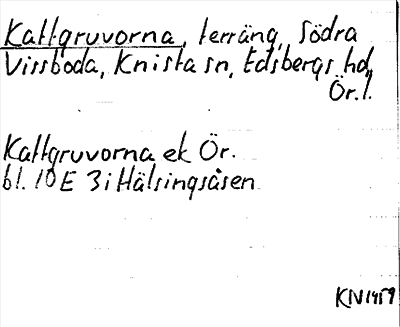 Kattgruvorna, terräng, Södra
Vissboda, Knista sn, Edsbergs hd,
Ör.l.
Kattgruvorna ek Ör.
bl. 10E 3i Hälsingsåsen
KN1959